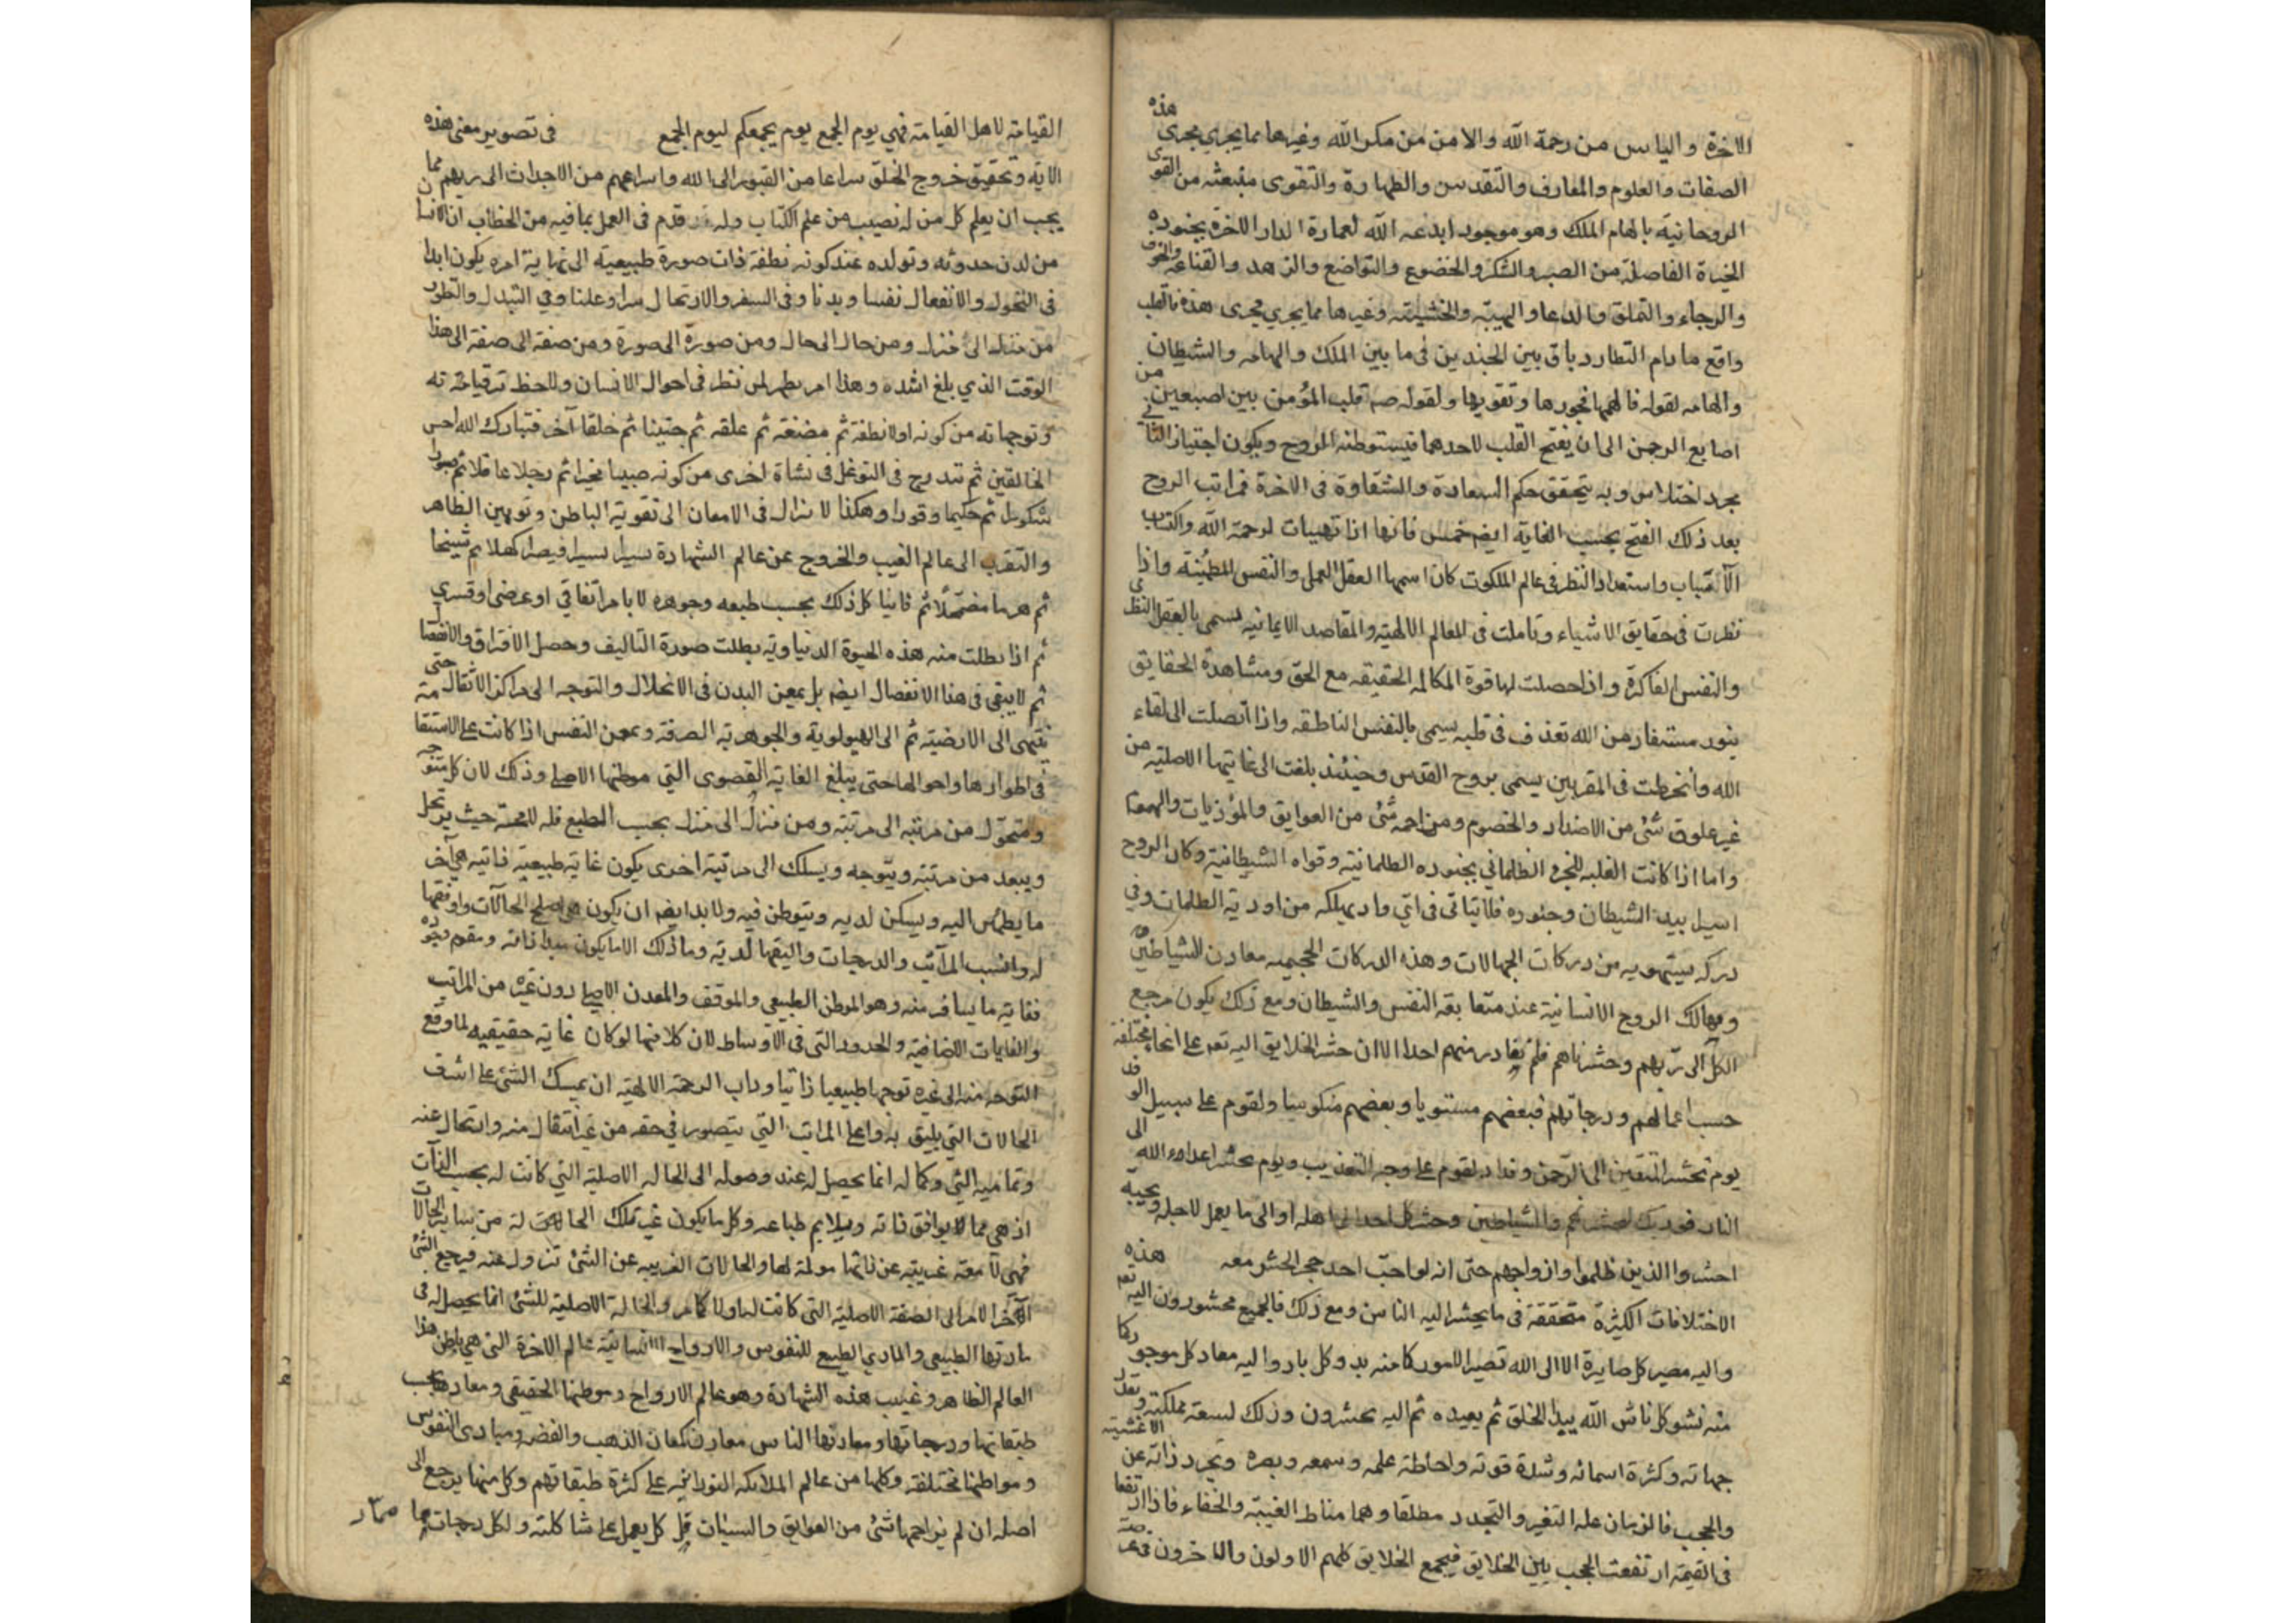 الاخرة والياس من رحمة الله والامن من مكر الله وغيرها مما يجري مجرى هذه
الصفات والعلوم والمعارف والتقدس والطهارة والتقوى منبعثه من القوى
الروحانية بالهام الملك وهو موجود ابدعه الله لعمارة الدار الاخرة بجنوده
الخيرة الفاضلة من الصبر والشكر والخضوع والتواضع والزهد والقناعة والخوف
والرجاء والتملق والدعا والهيبة والخشية وغيرها مما يجري مجرى هذه فالقلب
واقع ما دام التطارد باق بين الجندين في ما بين الملك والهامه والشيطان
والهامه لقوله فالهمها فجورها وتقويها ولقوله صم قلب المؤمن بين اصبعين من
اصابع الرحمن الى ان يفتح القلب لاحدهما فيستوطنه الروح ويكون اجتياز الثاني
مجرد اختلاس وبه يتحقق حكم السعادة والشقاوة في الاخرة فمراتب الروح
بعد ذلك الفتح بحسب الغاية ايضم خمس فانها اذا تهيات لرحمة الله واكتساب
الآداب واستعداد النظر في عالم الملكوت كان اسمها العقل العملي والنفس المطمئنة واذا
نظرت في حقايق الاشياء وتاملت في المعالم الالهية والمقاصد الايمانيه يسمى بالعقل النظري
والنفس الفاكرة واذا حصلت لها قوة المكالمه الحقيقه مع الحق ومشاهدة الحقايق
بنور مستفاد من الله تقذف في قلبه يسمى بالنفس الناطقه واذا اتصلت الى لقاء
الله وانخرطت في المقربين يسمى بروح القدس وحينئذ بلغت الى غايتها الاصلية من
غير علوق شئ من الاضداد والخصوم ومزاحمه شئ من العوايق والموذيات
واما اذا كانت الغلبه للجزء الظلماني بجنوده الظلمانية وقواه الشيطانية وكان الروح
اسير بيد الشيطان وجنوده فلا يتاتى في اي واد يهلكه من اودية الظلمات وفي
دركه يستهويه من دركات الجهالات وهذه الدركات الجحيميه معادن للشياطين
ومهالك الروح الانسانية عند متعا بقه النفس والشيطان ومع ذلك يكون مرجع
الكل الى ربهم وحشرناهم فلم يغادر منهم احدا الا ان حشر الخلايق اليه تعم على انحاء مختلفة
حسب اعمالهم ودرجاتهم فبعضهم مستويا وبعضهم منكوسا ولقوم على سبيل الوفد
يوم نحشر المتقين الى الرحمن وفدا ولقوم على وجه التعذيب ويوم يحشر اعداء الله الى
النار فوربك لنحشرنهم والشياطين وحشر كل احد الى اهله او الى ما يعمل لاجله ويحبه
احشروا الذين ظلموا وازواجهم حتى انه لو احب احد حجر الحشر معه هذه
الاختلافات الكثيرة متحققة في ما يحشر اليه الناس ومع ذلك فالجميع محشورون اليه تعم
واليه مصير كل صايرة الا الى الله تصير الامور كما منه بدو كل باد واليه معاد كل موجود كما
منه نشو كل ناش الله يبدا الخلق ثم يعيده ثم اليه يحشرون وذلك لسعة مملكته وتعدد
جهاته وكثرة اسمائه وشدة قوته واحاطة علمه وسمعه وبصره وتجرد ذاته عن الاغشية
والحجب فالزمان علة التغير والتجدد مطلقا وهما مناط الغيبة والخفاء فاذا ارتفعا
في القيمة ارتفعت الحجب بين الخلايق فيجمع الخلايق كلهم الاولون والاخرون في عرصة
القيامة لاهل القيامة فهي يوم الجمع يوم يجمعكم ليوم الجمع في تصوير معنى هذه
الاية وتحقيق خروج الخلق سراعا من القبور الى الله واسراعهم من الاجداث الى ربهم مما
يجب ان يعلم كل من له نصيب من علم الكتاب وله قدم في العمل بما فيه من الخطاب ان الانسان
من لدن حدوثه وتولده عند كونه نطفة ذات صورة طبيعية الى نهاية امره يكون ابدا
في التحول والانفعال نفسا وبدنا وفي السفر والارتحال سرا وعلنا وفي التبدل والتطور
من منزل الى منزل ومن حال الى حال ومن صورة الى صورة ومن صفة الى صفة الى هذا
الوقت الذي بلغ اشده وهذا امر يظهر لمن نظر في احوال الانسان ولاحظ ترقياته
وتوجهاته من كونه اولا نطفة ثم مضغة ثم علقه ثم جنينا ثم خلقا آخر فتبارك الله احسن
الخالقين ثم تدرج في التوغل في نشاة اخرى من كونه صبيا مخيرا ثم رجلا عاقلا ثم صبورا
شكورا ثم حكيما وقورا وهكذا لا يزال في الامعان الى تقوية الباطن وتوهين الظاهر
والتقرب الى عالم الغيب والخروج عن عالم الشهادة يسيرا يسيرا فيصير كهلا ثم شيخا
ثم هرما مضمحلا ثم فانيا كل ذلك بحسب طبعه وجوهره لا بامر اتفاقي او عرضي او قسري
ثم اذا بطلت منه هذه الحيوة الدنياوية بطلت صورة التاليف وحصل الافتراق والانفصال
ثم لا يبقى في هذا الانفصال ايضم بل يمعن البدن في الانحلال والتوجه الى مراكز الاثقال حتى
ينتهى الى الارضية ثم الى الهيولوية والجوهرية الصرفة ويمعن النفس اذا كانت على الاستقامة
في اطوارها واحوالها حتى يبلغ الغاية القصوى التي موطنها الاصلي وذلك لان كل متوجه
ومتحول من مرتبة الى مرتبة ومن منزل الى منزل بحسب الطبع فله لا محة حيث يرتحل
ويبعد من مرتبة ويتوجه ويسلك الى مرتبة اخرى يكون غاية طبيعية ذاتيه هي آخر
ما يطمئن اليه ويسكن لديه ويتوطن فيه ولا بد ايضم ان يكون هي اصلح الحالات واوفقها
له وانسب المراتب والدرجات واليقها لديه وما ذلك الا ما يكون مبدا ذاته ومقوم وجوده
فغاية ما يسافر منه وهو الموطن الطبيعي والموقف والمعدن الاصلي دون غيره من المراتب
والغايات الاضافية والحدود التي في الاوساط لان كلا منها لو كان غاية حقيقيه لما وقع
التوجه منه الى غيره توجها طبيعيا ذاتيا وداب الرحمة الالهية ان يمسك الشئ على اشرف
الحالات التي يليق به واعلى المراتب التي يتصور في حقه من غير انتقال منه وارتحال عنه
وتمامية الشئ وكماله انما يحصل له عند وصوله الى الحالة الاصلية التي كانت له بحسب الذات
اذ هي مما لا يوافق ذاته ويلايم طباعه وكل ما يكون غير تلك الحالة له من ساير الحالات
فهي غريبة عن ذاتها مولمة لها والحالات الغريبه عن الشئ تزول عنه فيرجع الشئ
آخر الامر الى الصفة الاصلية التي كانت لها ولا كامر والحالة الاصلية للشئ انما يحصل له في
مادتها الطبيعي والمادي الطبيع للنفوس والارواح الانسانية عالم الاخرة التي هي باطن هذا
العالم الظاهر وغيب هذه الشهادة وهو عالم الارواح وموطنها الحقيقي ومعادها بحسب
طبقاتها ودرجاتها ومعادنها الناس معادن كمعادن الذهب والفضة ومبادى النفوس
ومواطنها مختلفة وكلها من عالم الملائكه النورانية على كثرة طبقاتهم وكل منها يرجع الى
اصله ان لم يزاحمها شئ من العوايق والسيئات قل كل يعمل على شاكلته ولكل درجات مما